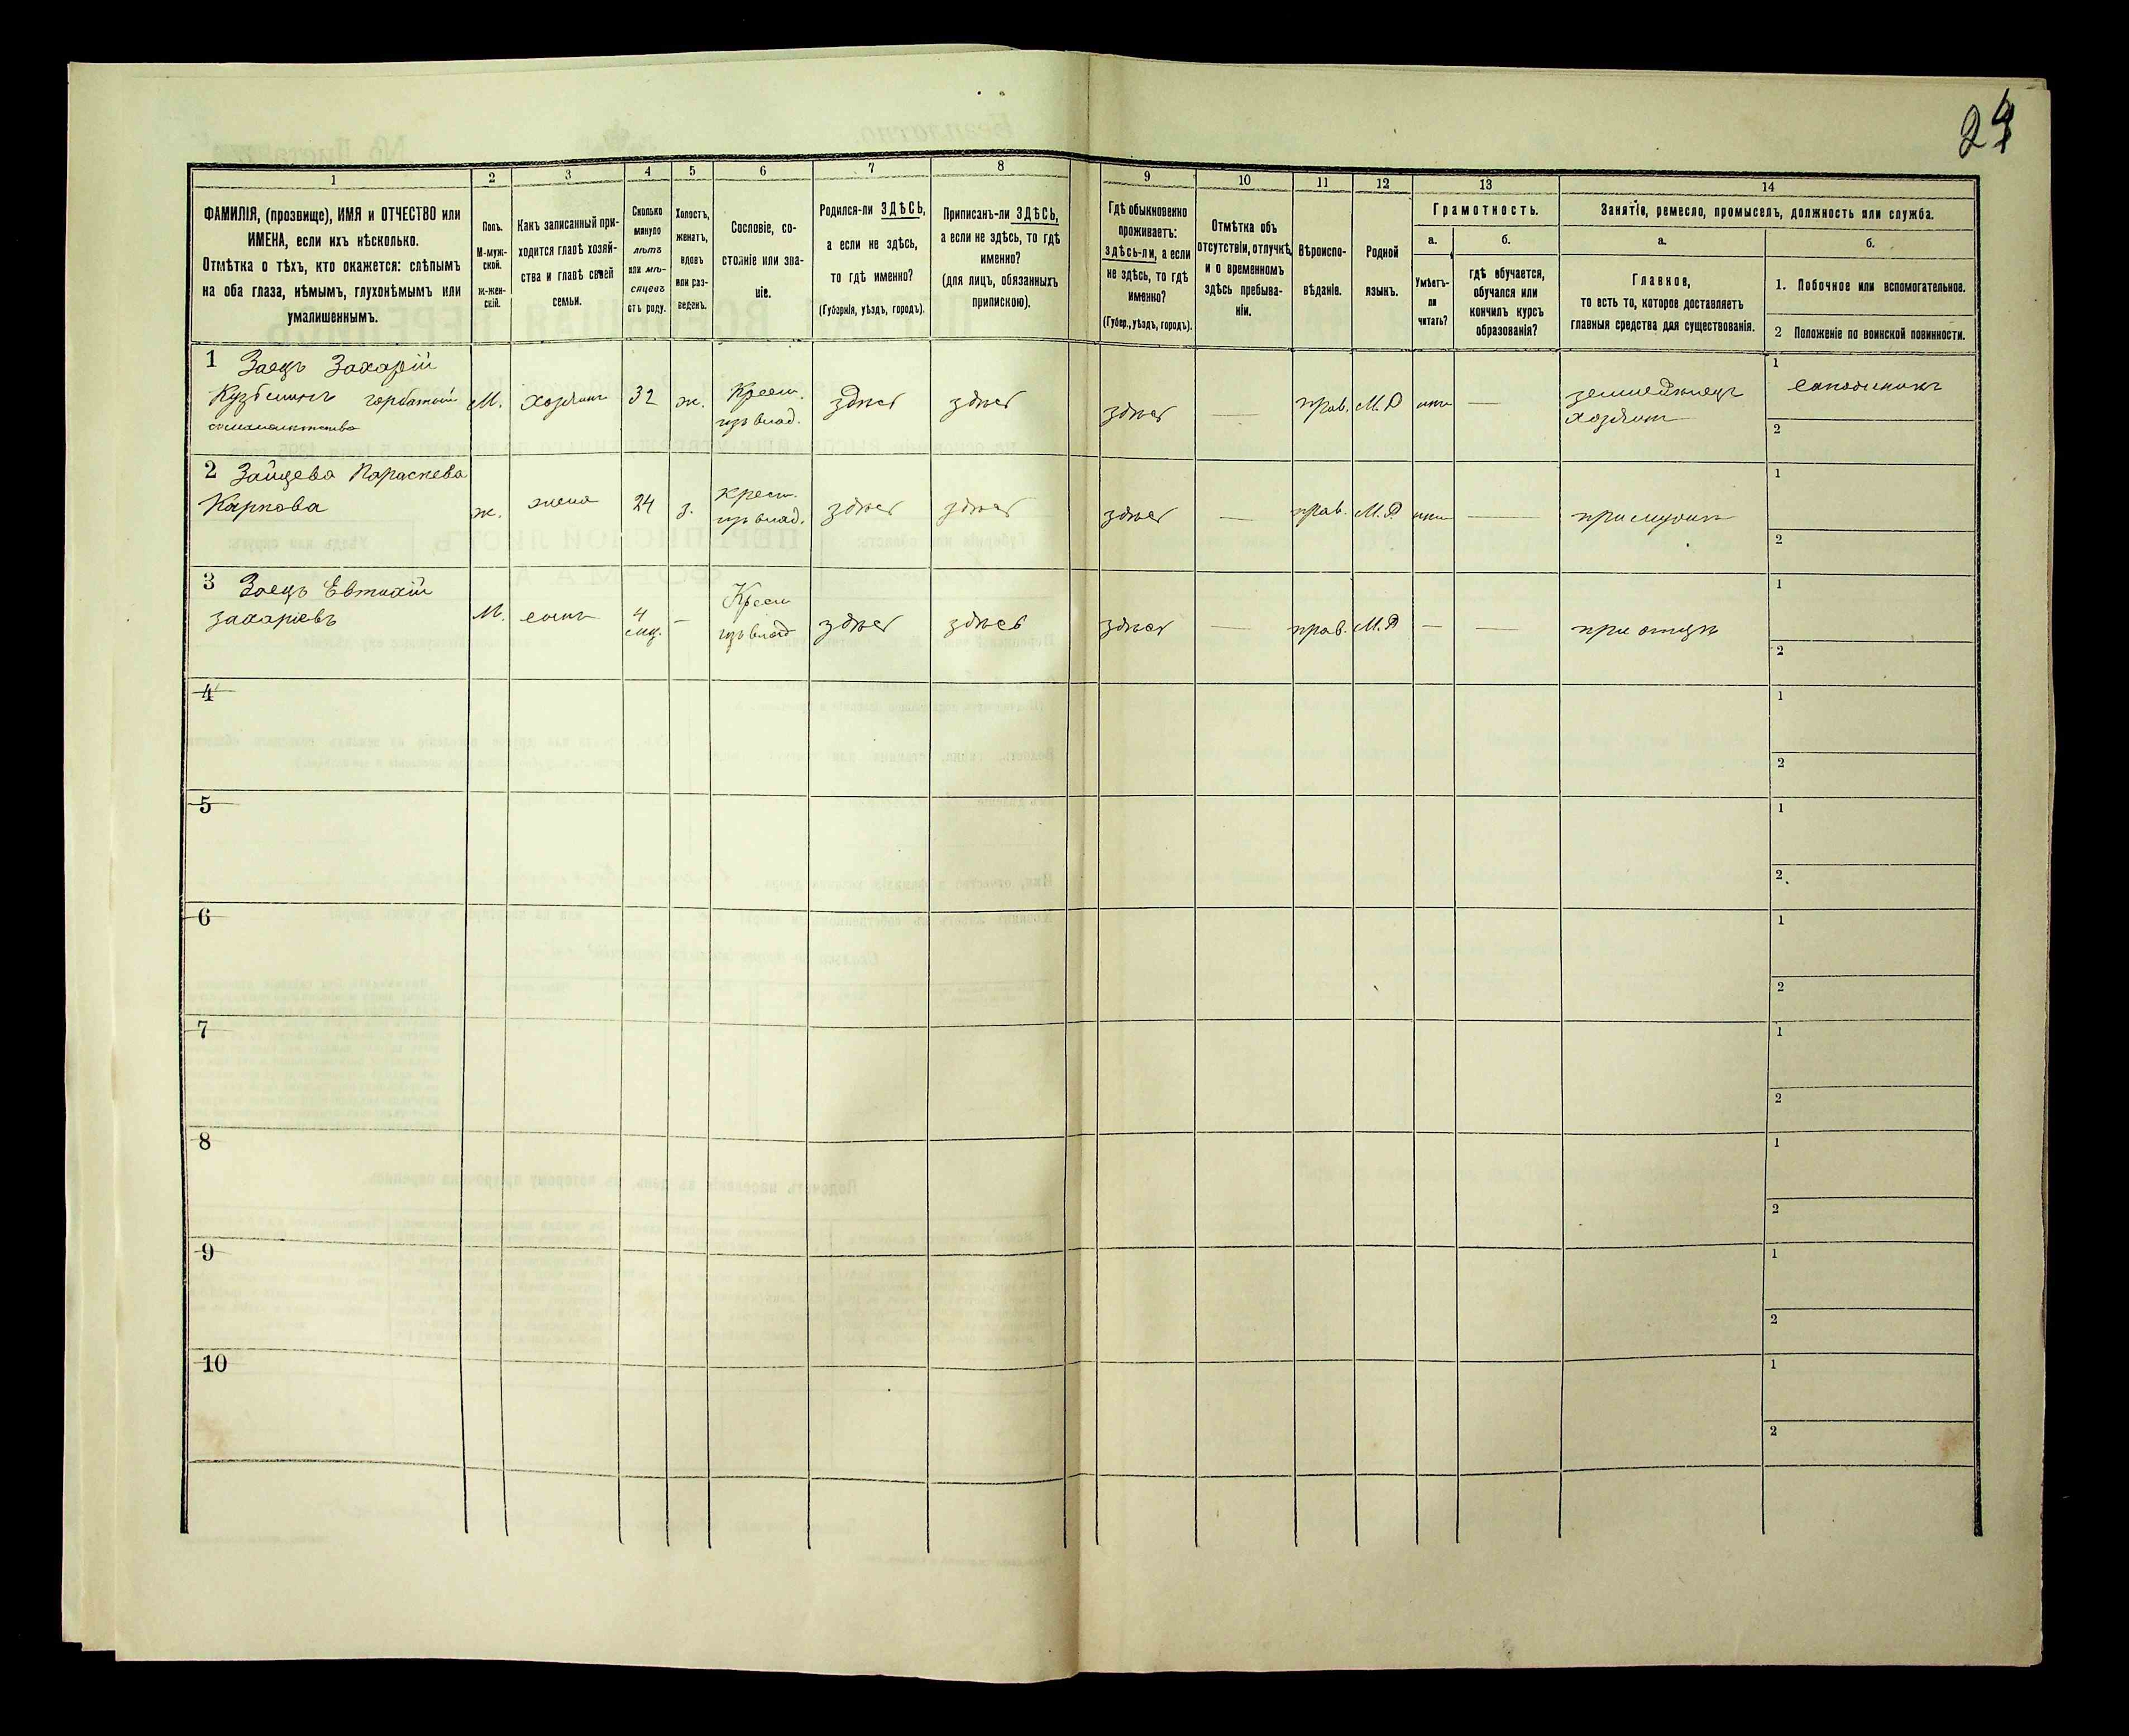 24
1 2 3 4 5 6 7 8 9 10 11 12 13 14
ФАМИЛІЯ, (прозвище), ИМЯ и ОТЧЕСТВО или
ИМЕНА, если ихъ нѣсколько.
Отмѣтка о тѣхъ, кто окажется: слѣпымъ
на оба глаза, нѣмымъ, глухонѣмымъ или
умалишеннымъ.
Полъ.
М-муж-
ской.
ж-жен-
скій.
Какъ записанный при-
ходится главѣ хозяй-
ства и главѣ своей
семьи.
Сколько
минуло
лѣтъ
или мѣ-
сяцевъ
отъ роду.
Холостъ,
женатъ,
вдовъ
или раз-
веденъ.
Сословіе, со-
стояніе или зва-
ніе.
Родился-ли ЗДѢСЬ,
а если не здѣсь,
то гдѣ именно?
(Губернія, уѣздъ, городъ).
Приписанъ-ли ЗДѢСЬ,
а если не здѣсь, то гдѣ
именно?
(для лицъ, обязанныхъ
припискою).
Гдѣ обыкновенно
проживаетъ:
здѣсь-ли, а если
не здѣсь, то гдѣ
именно?
(Губер., уѣздъ, городъ).
Отмѣтка объ
отсутствіи, отлучкѣ
и о временномъ
здѣсь пребыва-
ніи.
Вѣроиспо-
вѣданіе.
Родной
языкъ.
Грамотность.
а.
Умѣетъ-
ли
читать?
б.
гдѣ обучается,
обучался или
кончилъ курсъ
образованія?
Занятіе, ремесло, промыселъ, должность или служба.
а.
Главное,
то есть то, которое доставляетъ
главныя средства для существованія.
б.
1. Побочное или вспомогательное.
2 Положеніе по воинской повинности.
1 Заецъ Захарій
Кузьминъ горбатый
М. хозяинъ 32 ж. Крест. изъ влад. здѣсь здѣсь здѣсь — прав. М.Р нѣтъ — земледѣлецъ хозяинъ
1 сапожникъ
2
2 Зайцева Параскева
Карпова
ж. жена 24 з. крест. изъ влад. здѣсь здѣсь здѣсь — прав. М.Р. нѣтъ — при мужѣ
1
2
3 Заецъ Евтихій
Захаріевъ
М. сынъ 4 мѣс. — Крест изъ влад здѣсь здѣсь здѣсь — прав. М.Р — — при отцѣ
1
2
4
1
2
5
1
2
6
1
2
7
1
2
8
1
2
9
1
2
10
1
2